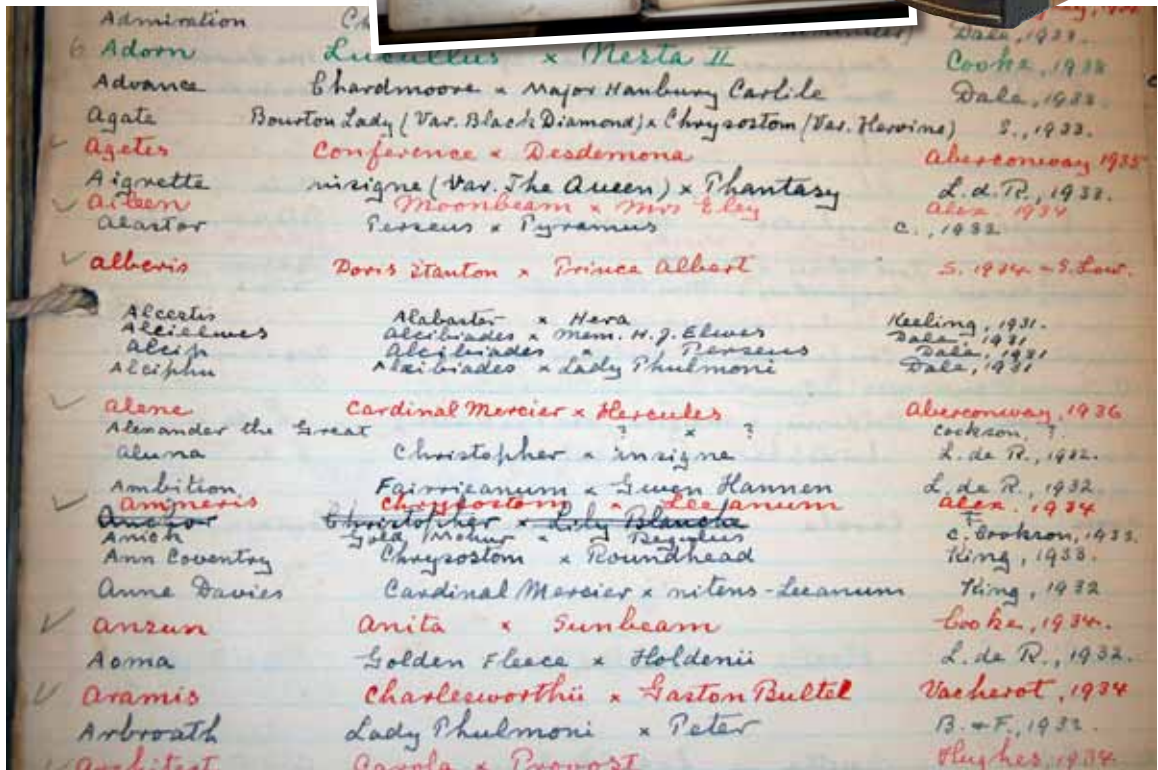 Admiration Dale, 1933.
6 Adorn Lucullus × Nesta II Cooke, 1933
Advance Chardmoore × Major Hanbury Carlile Dale, 1933.
Agate Bourton Lady (Var. Black Diamond) × Chrysostom (Var. Heroine) S., 1933.
Agetes Conference × Desdemona Aberconway 1935
Aigrette insigne (Var. The Queen) × Phantasy L. d. R., 1933.
Aileen Moonbeam × Mrs Eley Alex. 1934
Alastor Perseus × Pyramus C., 1932
Alberis Doris Stanton × Prince Albert S. 1934 - S. Low.
Alcestis Alabaster × Hera Keeling, 1931.
Alcielwes Alcibiades × Mem. H. J. Elwes Dale, 1931
Alcip Alcibiades × Perseus Dale, 1931
Alciphu Alcibiades × Lady Phulmoni Dale, 1931
Alene Cardinal Mercier × Hercules Aberconway, 1936
Alexander the Great ? × ? Cookson, ?
Aluna Christopher × insigne L. de R., 1932.
Ambition Fairrieanum × Gwen Hannen L. de R., 1932
Amneris Chrysostom × Leeanum Alex. 1934
Anchor Christopher × Lily Blanche F.
Anich Gold Mohur × Regulus C. Cookson, 1933.
Ann Coventry Chrysostom × Roundhead King, 1933.
Anne Davies Cardinal Mercier × nitens-Leeanum King, 1932
Anzun Anita × Sunbeam Cooke, 1934.
Aoma Golden Fleece × Holdenii L. de R., 1932.
Aramis Charlesworthii × Gaston Bultel Vacherot, 1934
Arbroath Lady Phulmoni × Peter B. & F., 1932.
Architect Carola × Provost Hughes, 1934.